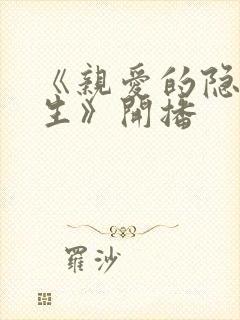 《親愛的隐
生》開播
羅沙